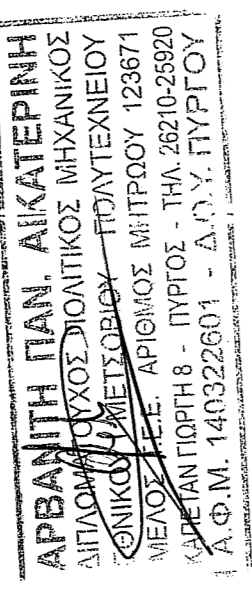 ΑΡΒΑΝΙΤΗ ΠΑΝ. ΑΙΚΑΤΕΡΙΝΗ
ΔΙΠΛΩΜΑΤΟΥΧΟΣ ΠΟΛΙΤΙΚΟΣ ΜΗΧΑΝΙΚΟΣ
ΕΘΝΙΚΟΥ ΜΕΤΣΟΒΙΟΥ ΠΟΛΥΤΕΧΝΕΙΟΥ
ΜΕΛΟΣ Τ.Ε.Ε. ΑΡΙΘΜΟΣ ΜΗΤΡΩΟΥ 123671
ΚΑΠΕΤΑΝ ΓΙΩΡΓΗ 8 - ΠΥΡΓΟΣ - ΤΗΛ. 26210-25920
Α.Φ.Μ. 140322601 - Δ.Ο.Υ. ΠΥΡΓΟΥ